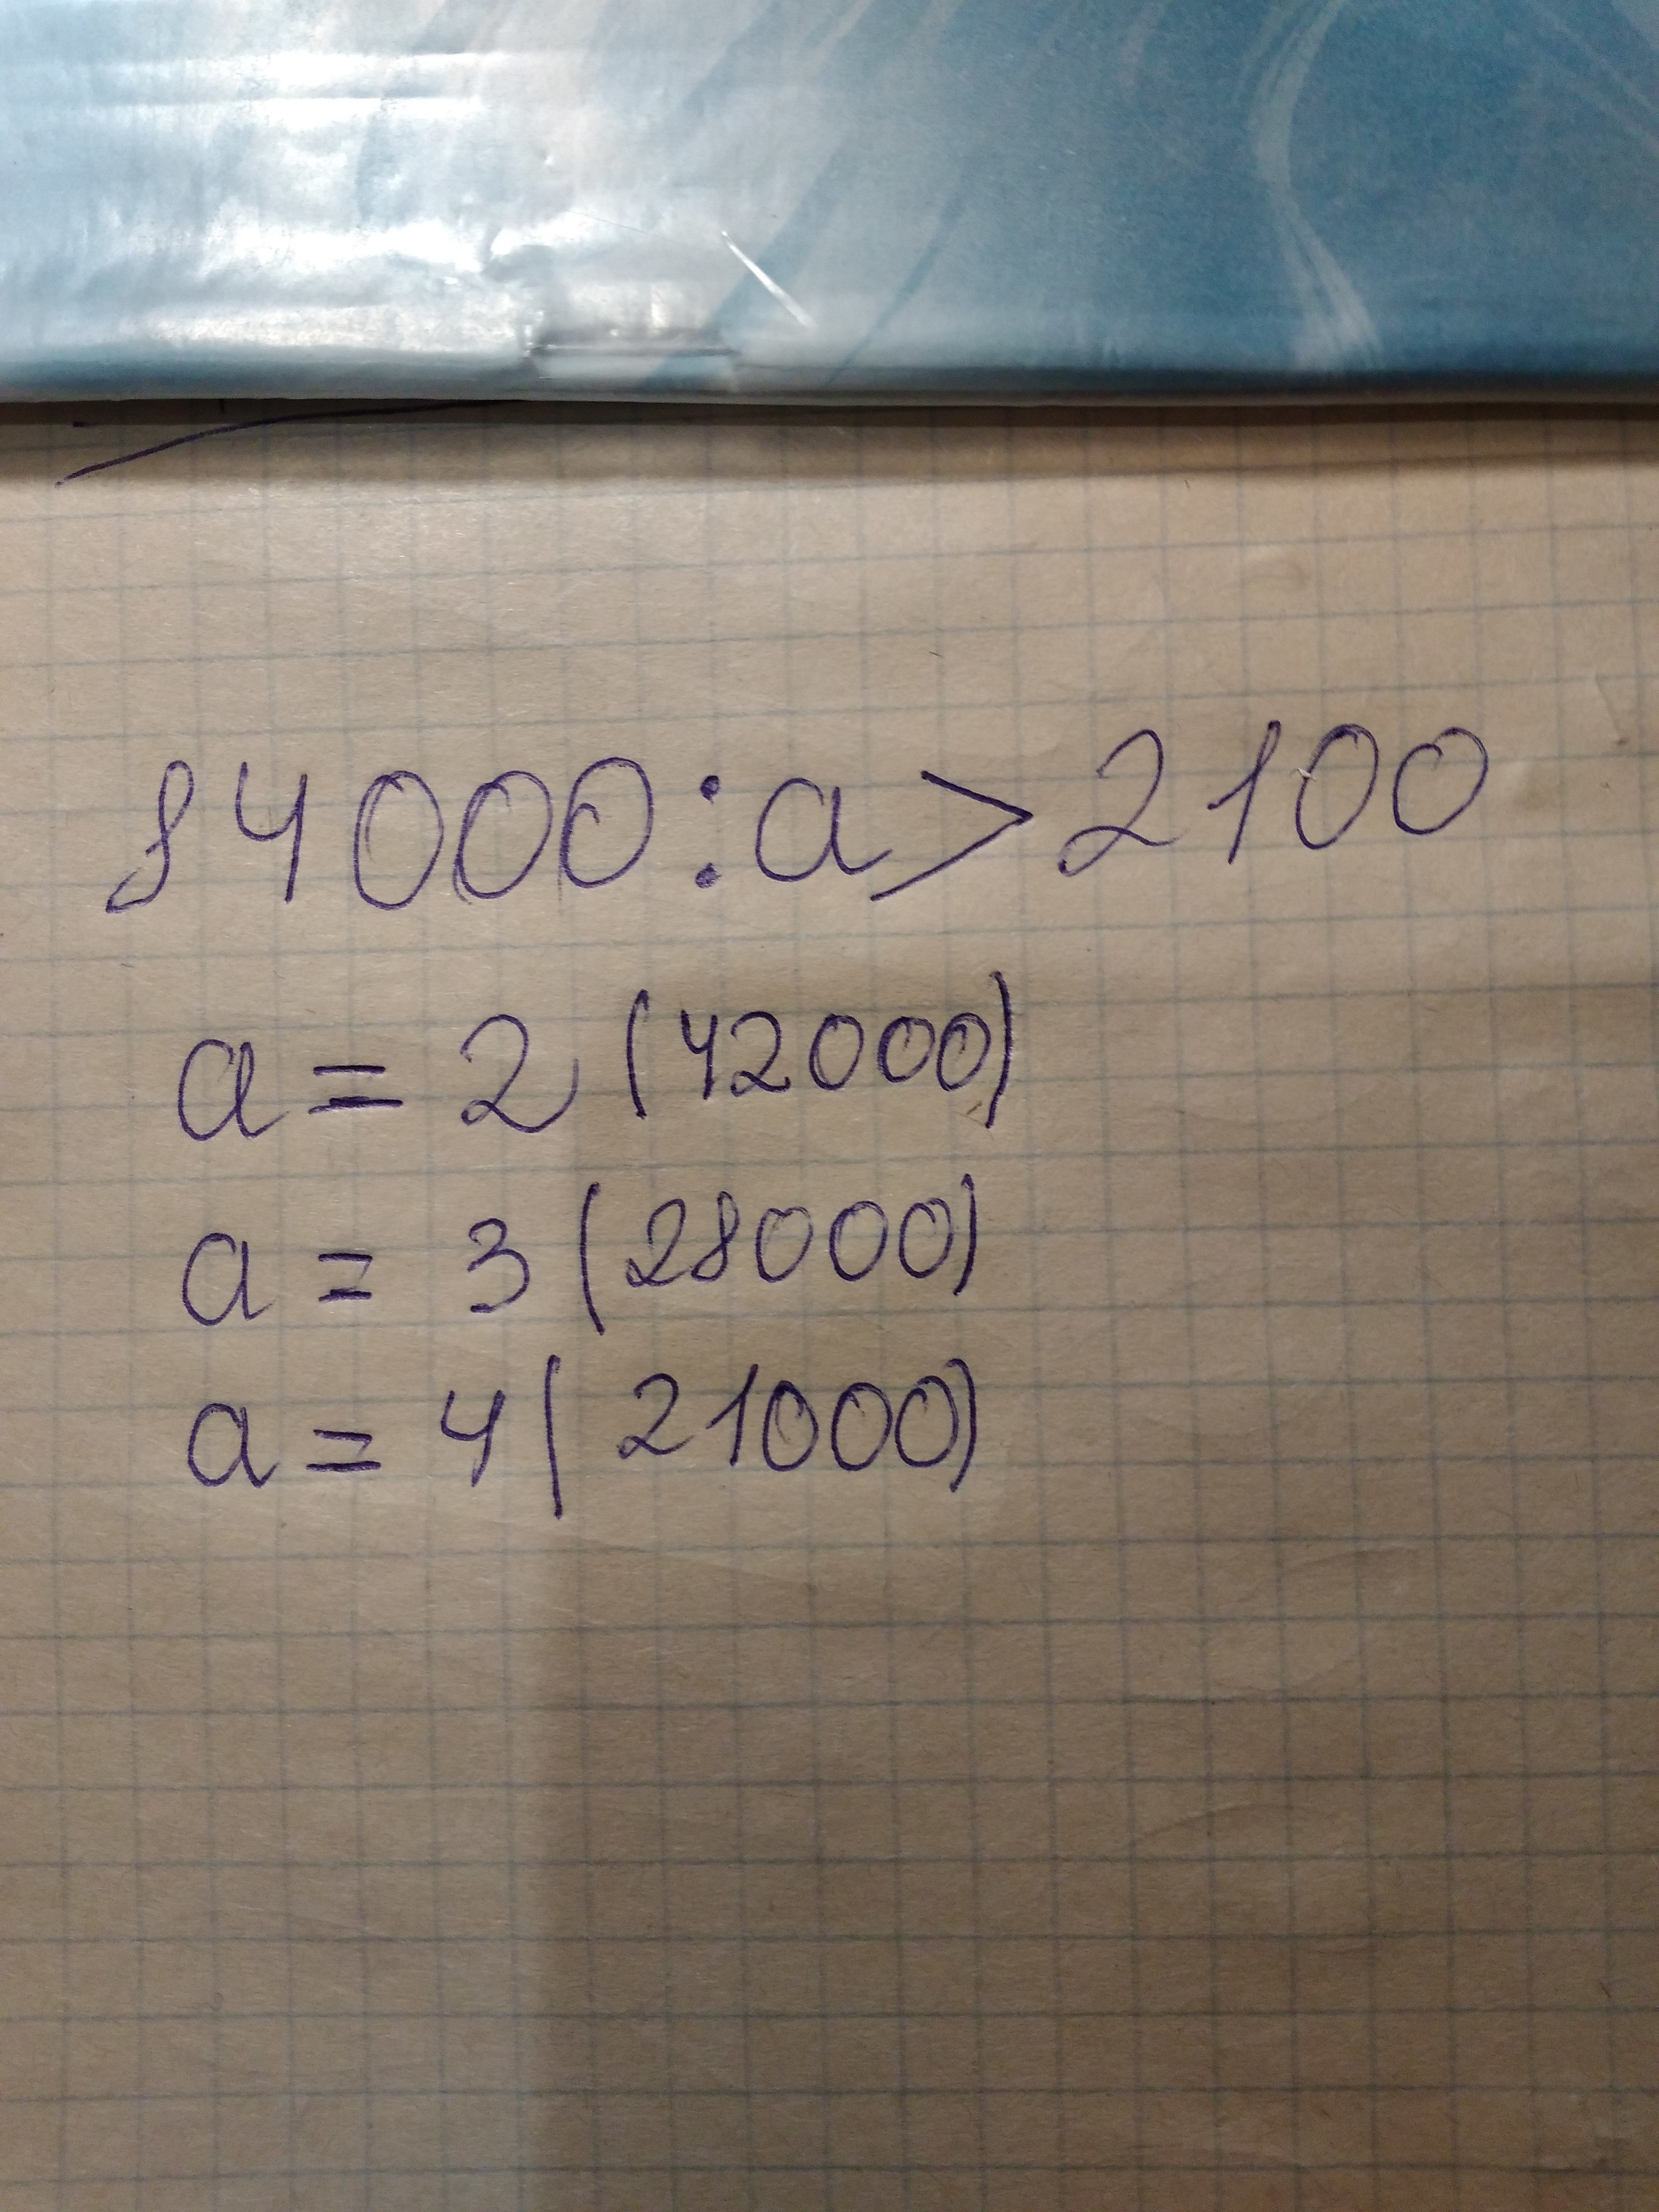 84000:a>2100
a=2(42000)
a=3(28000)
a=4(21000)